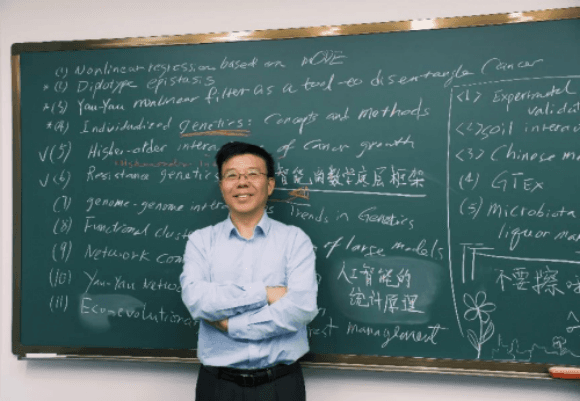 (1) Nonlinear regression based on nODE
*(2) Diplotype epistasis
*(3) Yau-Yau nonlinear filter as a tool to disentangle Cancer
*(4) Individualized genetics: Concepts and methods
√(5) Higher-order intern of Cancer growth
√(6) Resistance genetics 智能的数学底层框架
(7) genome-genome inter Trends in Genetics
(8) Functional clust of large models
(9) Network com
(10) Yau-Yau Netwo
(11) Eco-evolutiona ast management
人工智能的
统计原理
<1> Experimental
valida
<2> soil intera
<3> Chinese m
(4) GTEx
(5) Microbiota
liquor ma
不要擦